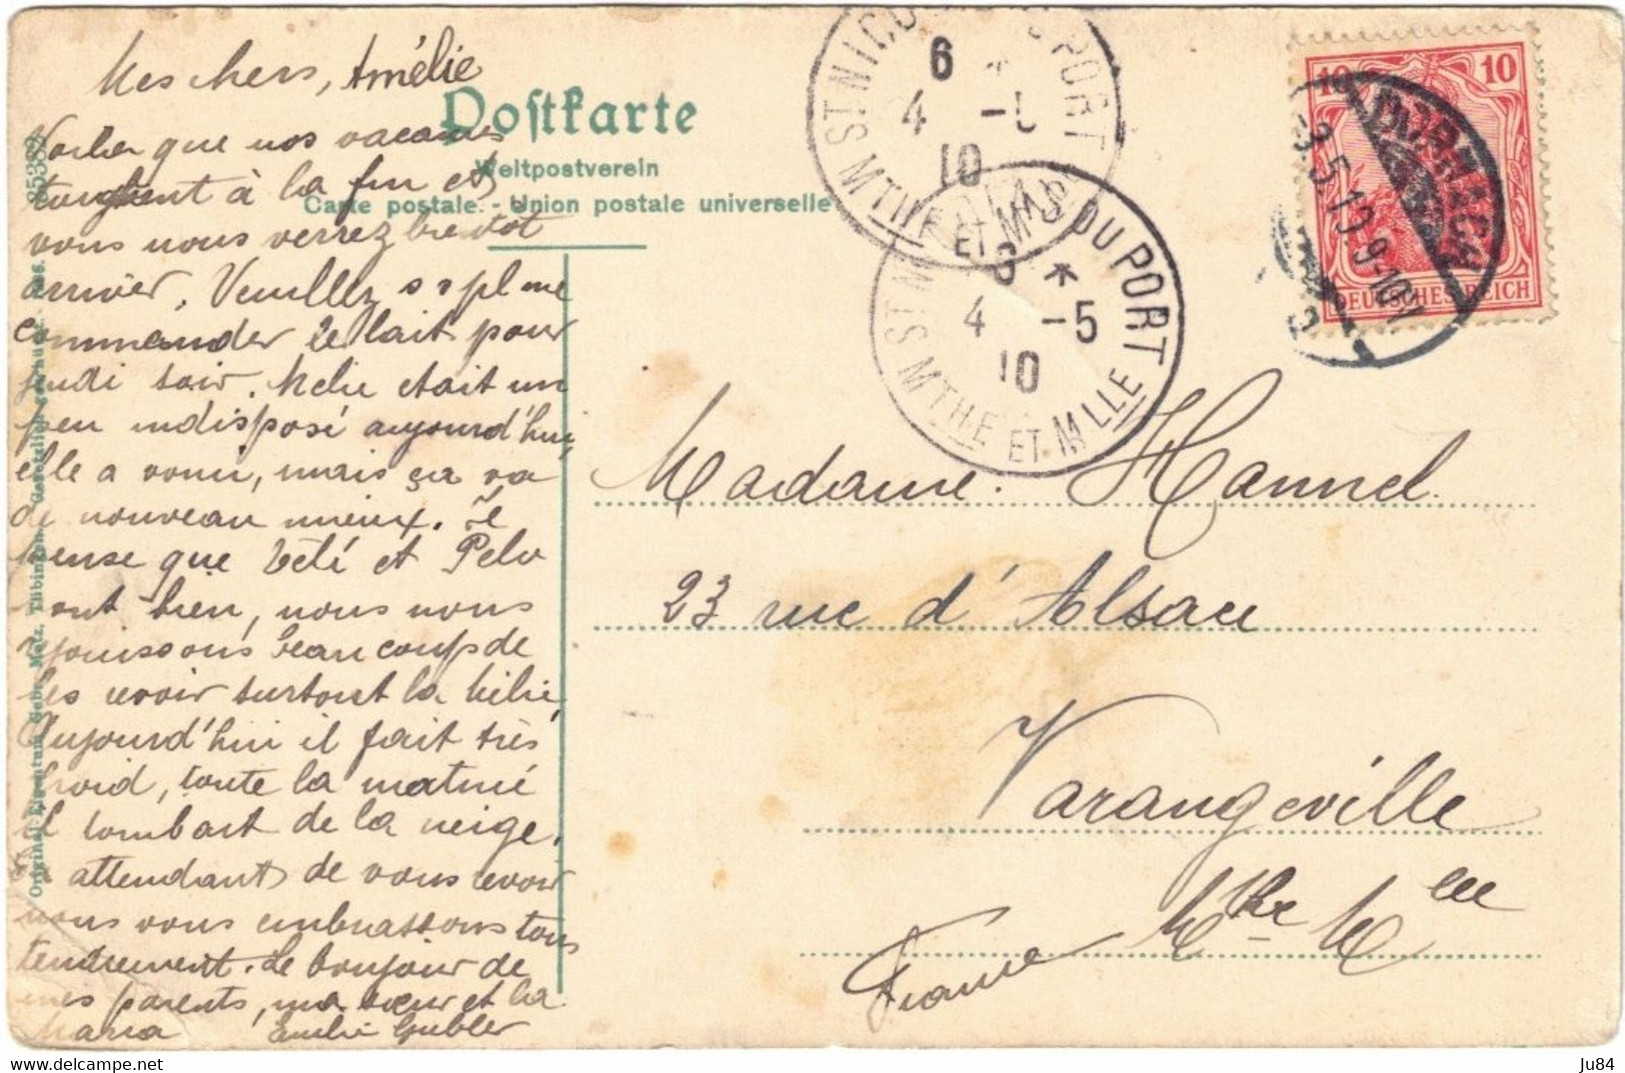 Mes chers, Amélie
Postkarte
Weltpostverein
Carte postale. - Union postale universelle
que nos vacances
touchent à la fin et
vous nous verrez bientôt
arriver. Veuillez s v pl me
commander le lait pour
jeudi soir. Mélie était un
peu indisposé aujourd'hui,
elle a vomi, mais ça va
de nouveau mieux. Je
pense que Zeli et Pelo
vont bien, nous nous
rejouissons beaucoup de
les revoir surtout la
Aujourd'hui il fait très
froid, toute la matiné
il tombait de la neige.
En attendant de vous revoir
nous vous embrassons tous
tendrement. Le bonjour de
mes parents, ma sœur et la
Maria Emilie Gubler
ST NICOLAS DU PORT
6
4 -5
10
MTHE ET MLLE
ST NICOLAS DU PORT
6 *
4 -5
10
MTHE ET MLLE
10 10
DEUTSCHES REICH
DORNACH
-3.5.10.9-10V
Madame. Hannel.
23 rue d'Alsace
Varangeville
Mthe Mlle
France
Original-Eigentum Gebr. Metz, Tübingen. Gesetzlich geschützt.
Ju84